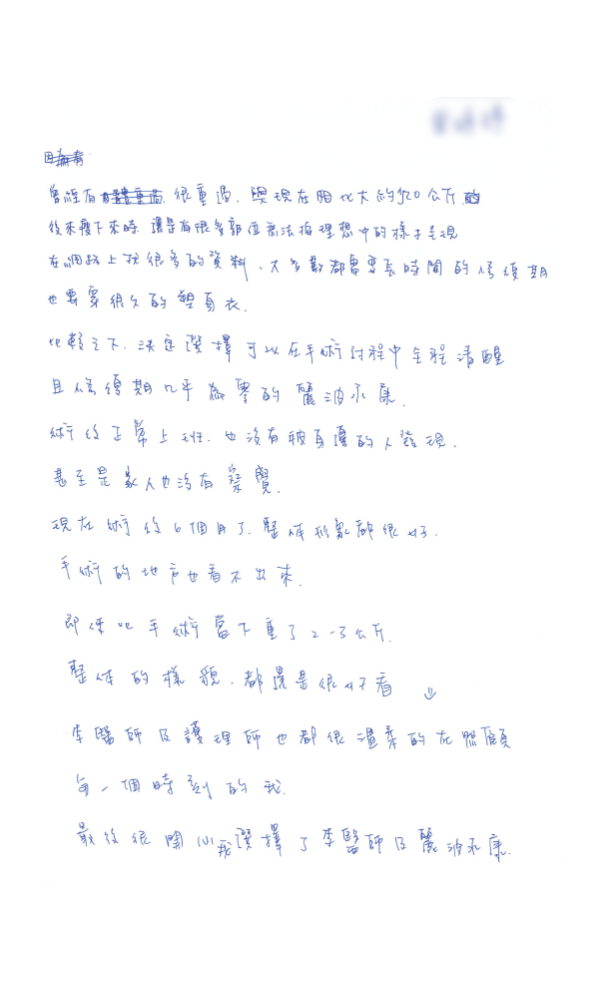 曾經有很重過,與現在相比大約520公斤
後來瘦下來時 還是有很多部位無法有理想中的樣子呈現
在網路上找很多的資料、大多數都需要長時間的修復期
也要穿很久的塑身衣.
比較之下.決定選擇可以在手術過程中全程清醒
且修復期几乎為零的麗波永康.
術後正常上班.也沒有被身邊的人發現.
甚至是家人也沒有察覺.
現在術後6個月了.整体形象都很好.
手術的地方也看不出來.
即使比手術當下重了2-3公斤.
整体的樣貌.都還是很好看 ↓
李醫師及護理師也都很溫柔的在照顧
每一個時刻的我.
最後很開心我選擇了李醫師及麗波永康.